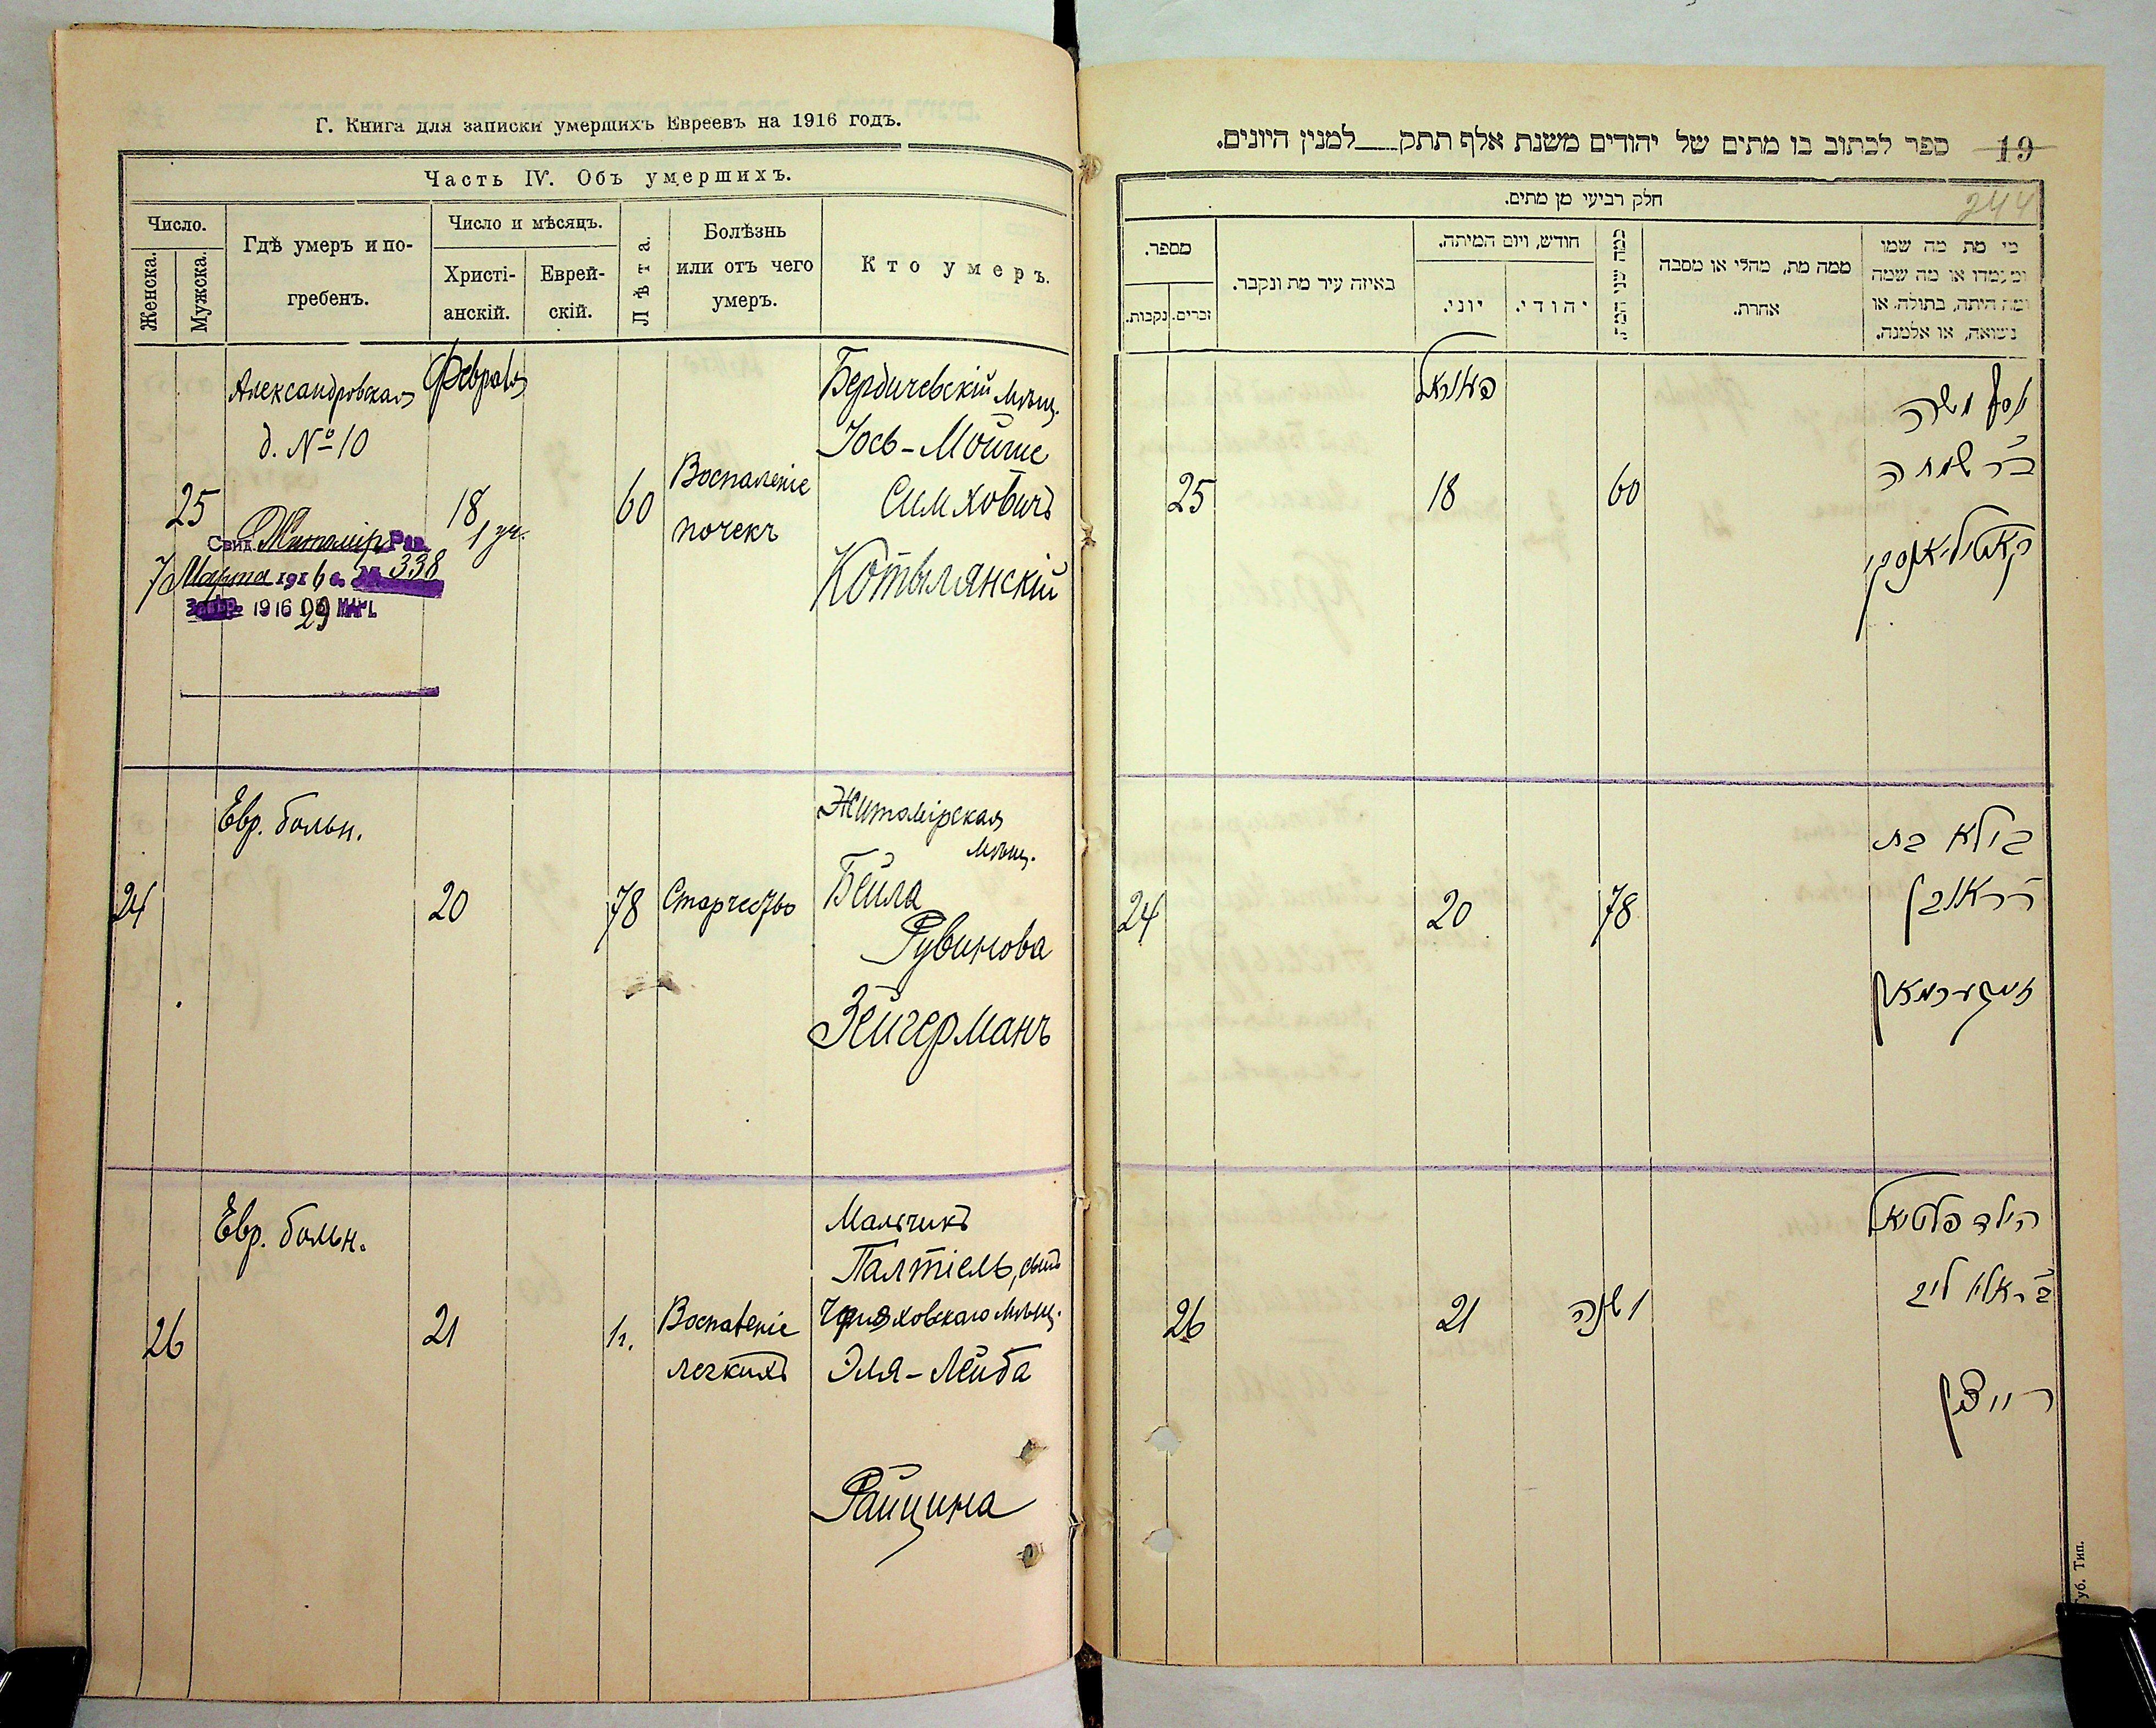 Г. Книга для записки умершихъ Евреевъ на 1916 годъ.
Часть IV. Объ умершихъ.
Число.
Женска.
Мужска.
Гдѣ умеръ и по-
гребенъ.
Число и мѣсяцъ.
Христі-
анскій.
Еврей-
скій.
Лѣта.
Болѣзнь
или отъ чего
умеръ.
Кто умеръ.
Александровская
д. № 10
Февраля
25
18
60
Воспаленіе
почекъ
Бердичевскій мѣщ.
Іось-Мойше
Симховичъ
Котылянскій
Свид. Житомір. Рав.
7 Марта 1916 г. № 338
1916
Евр. больн.
24
20
78
Старчество
Житомірская
мѣщ.
Бейла
Рувинова
Зейгерманъ
Евр. больн.
26
21
1 г.
Воспаленіе
легкихъ
Мальчикъ
Палтіель, сынъ
Черняховскаго мѣщ.
Эля-Лейба
Райцина
19
ספר לכתוב בו מתים של יהודים משנת אלף תתק למנין היונים.
244
חלק רביעי מן מתים.
מספר.
נקבות.
זכרים.
באיזה עיר מת ונקבר.
חודש, ויום המיתה.
יוני.
יהודי.
כמה שני המת
ממה מת, מחלי או מסבה
אחרת.
מי מת מה שמו
ומעמדו או מה שמה
ומה היתה, בתולה, או
נשואה, או אלמנה.
25
פעווראל
18
60
יוסף משה
ב״ר שמחה
קאטיליאנסקי
24
20
78
ביילא בת
ר׳ ראובן
זייגערמאן
26
21
1 שנה
הילד פלטיאל
ב״ר אלי׳ ליב
רייצין
Губ. Тип.